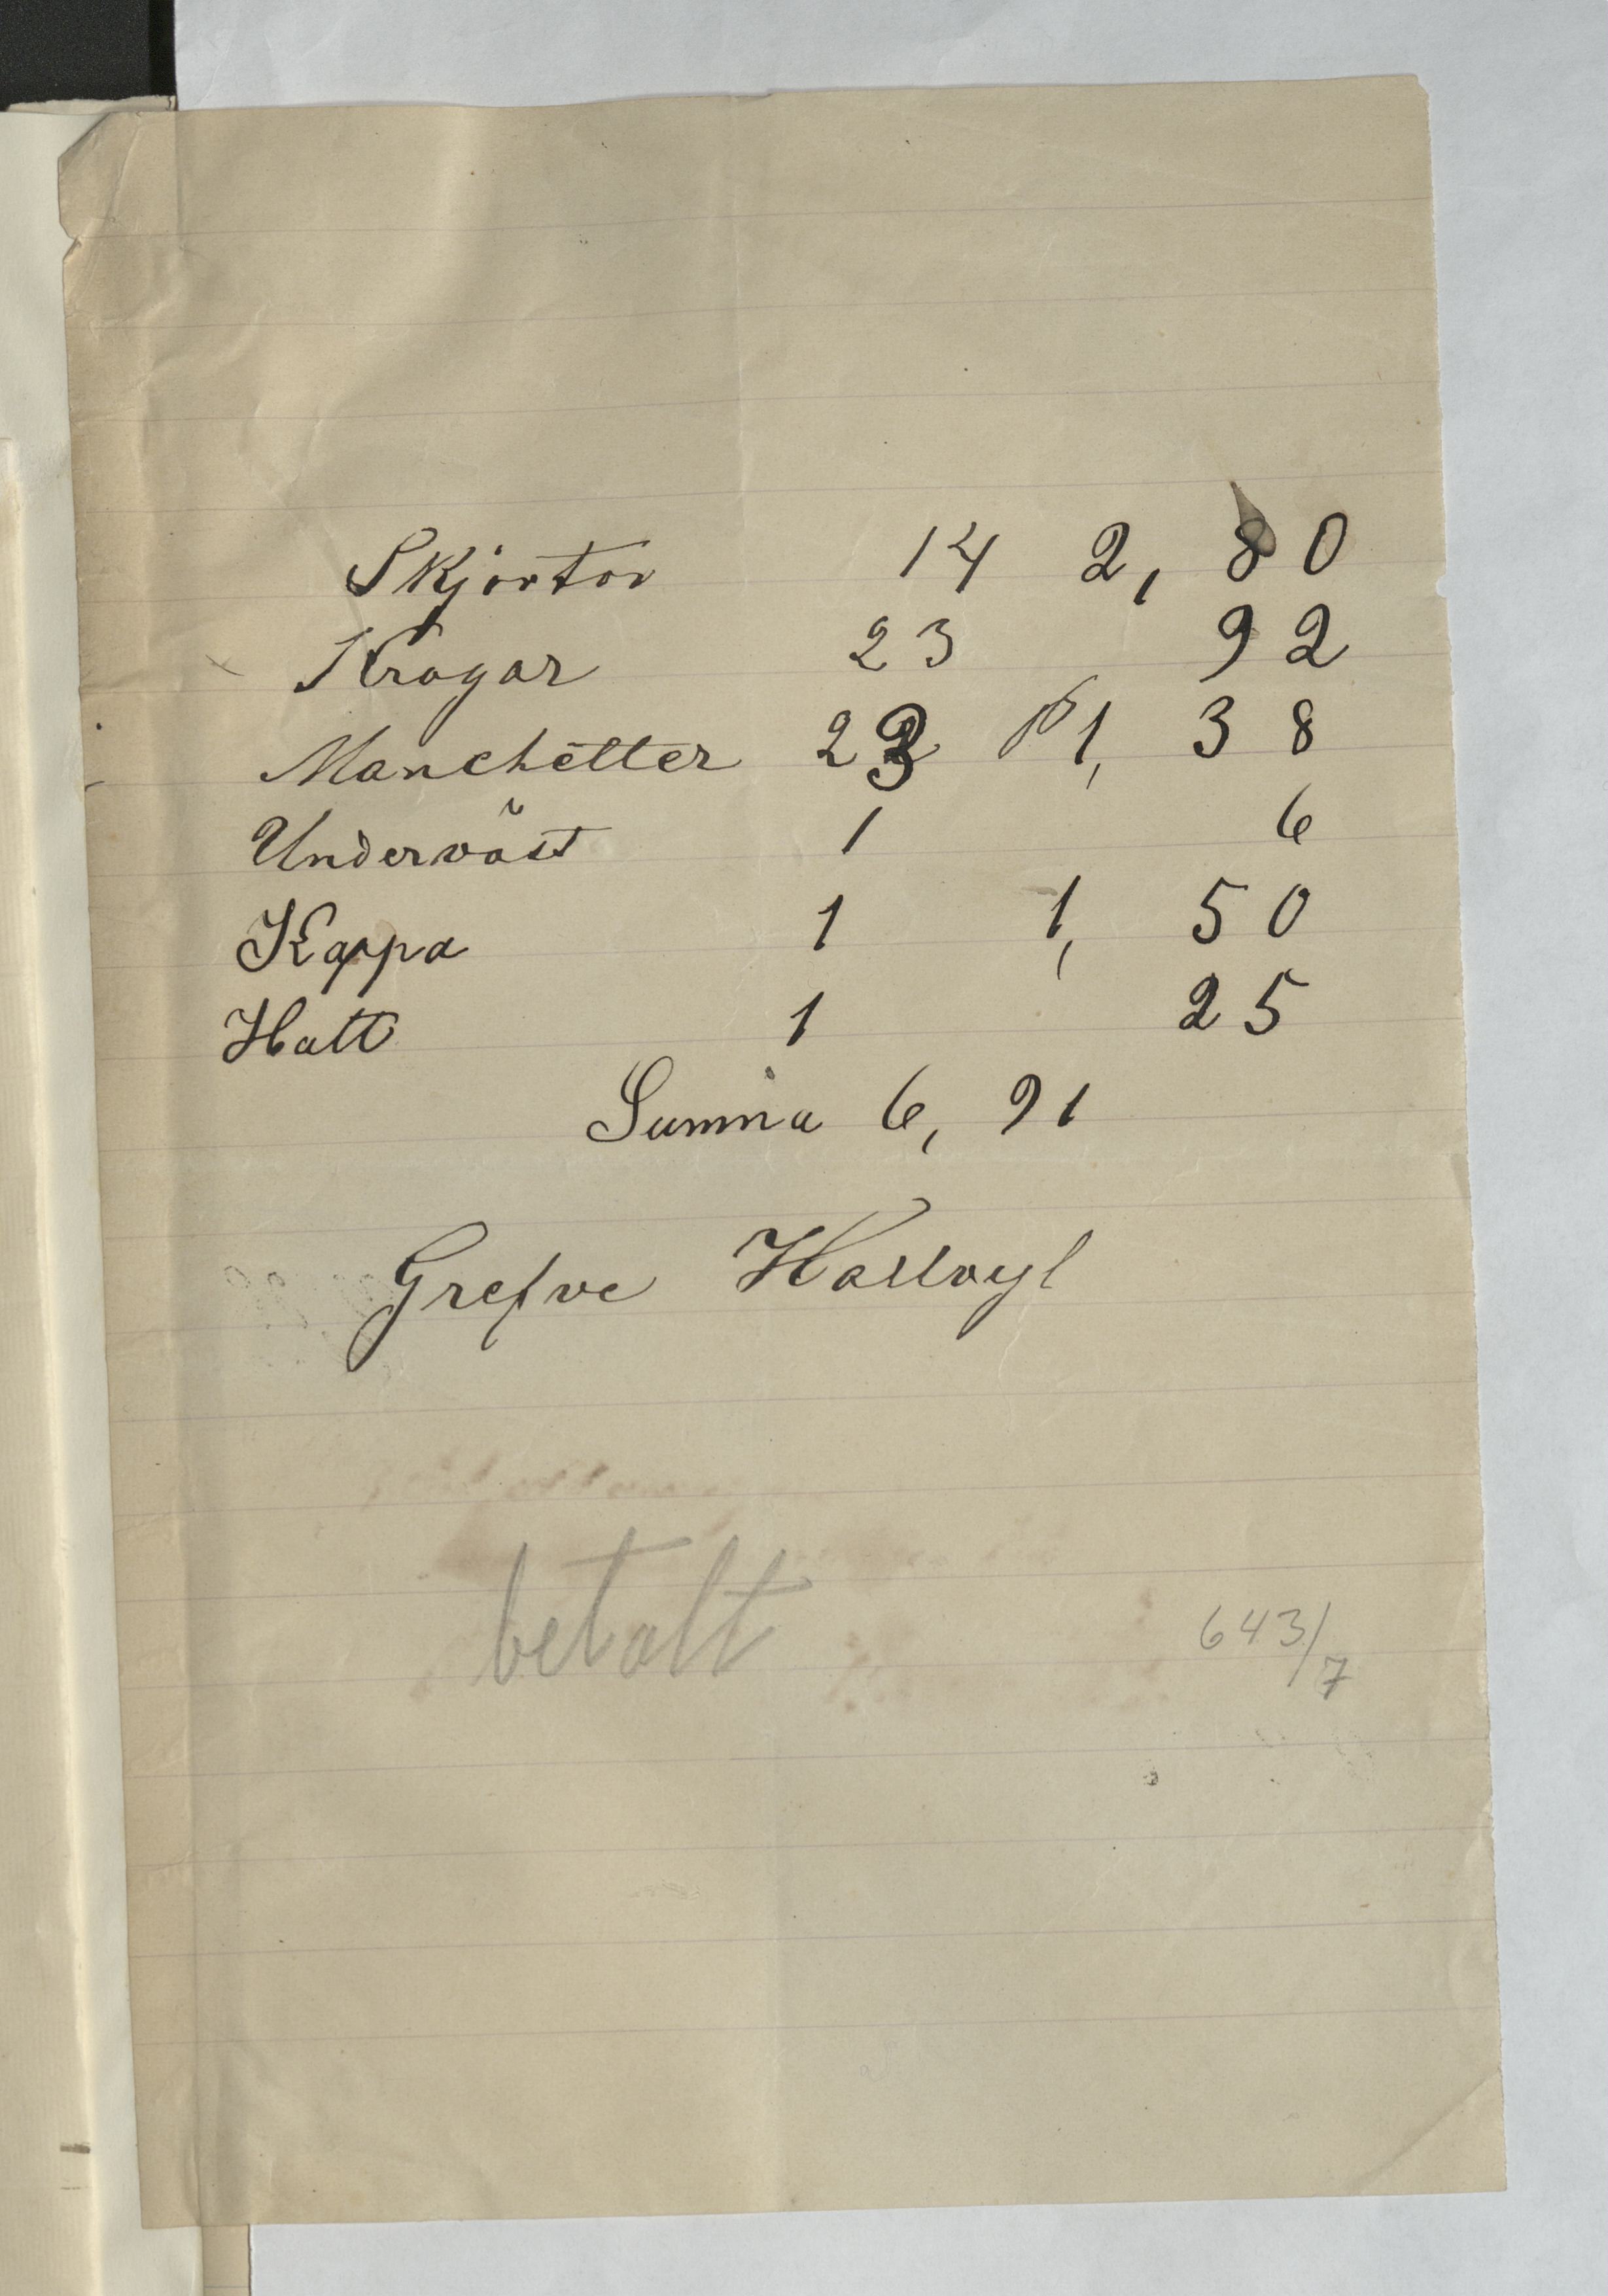 Skjortor 14 2, 80
Kragar 23 92
Manchetter 23 pr 1, 38
Underväst 1 6
Kappa 1 1, 50
Hatt 1 25
Summa 6, 91
Grefve Hallvyl
betalt
643/7